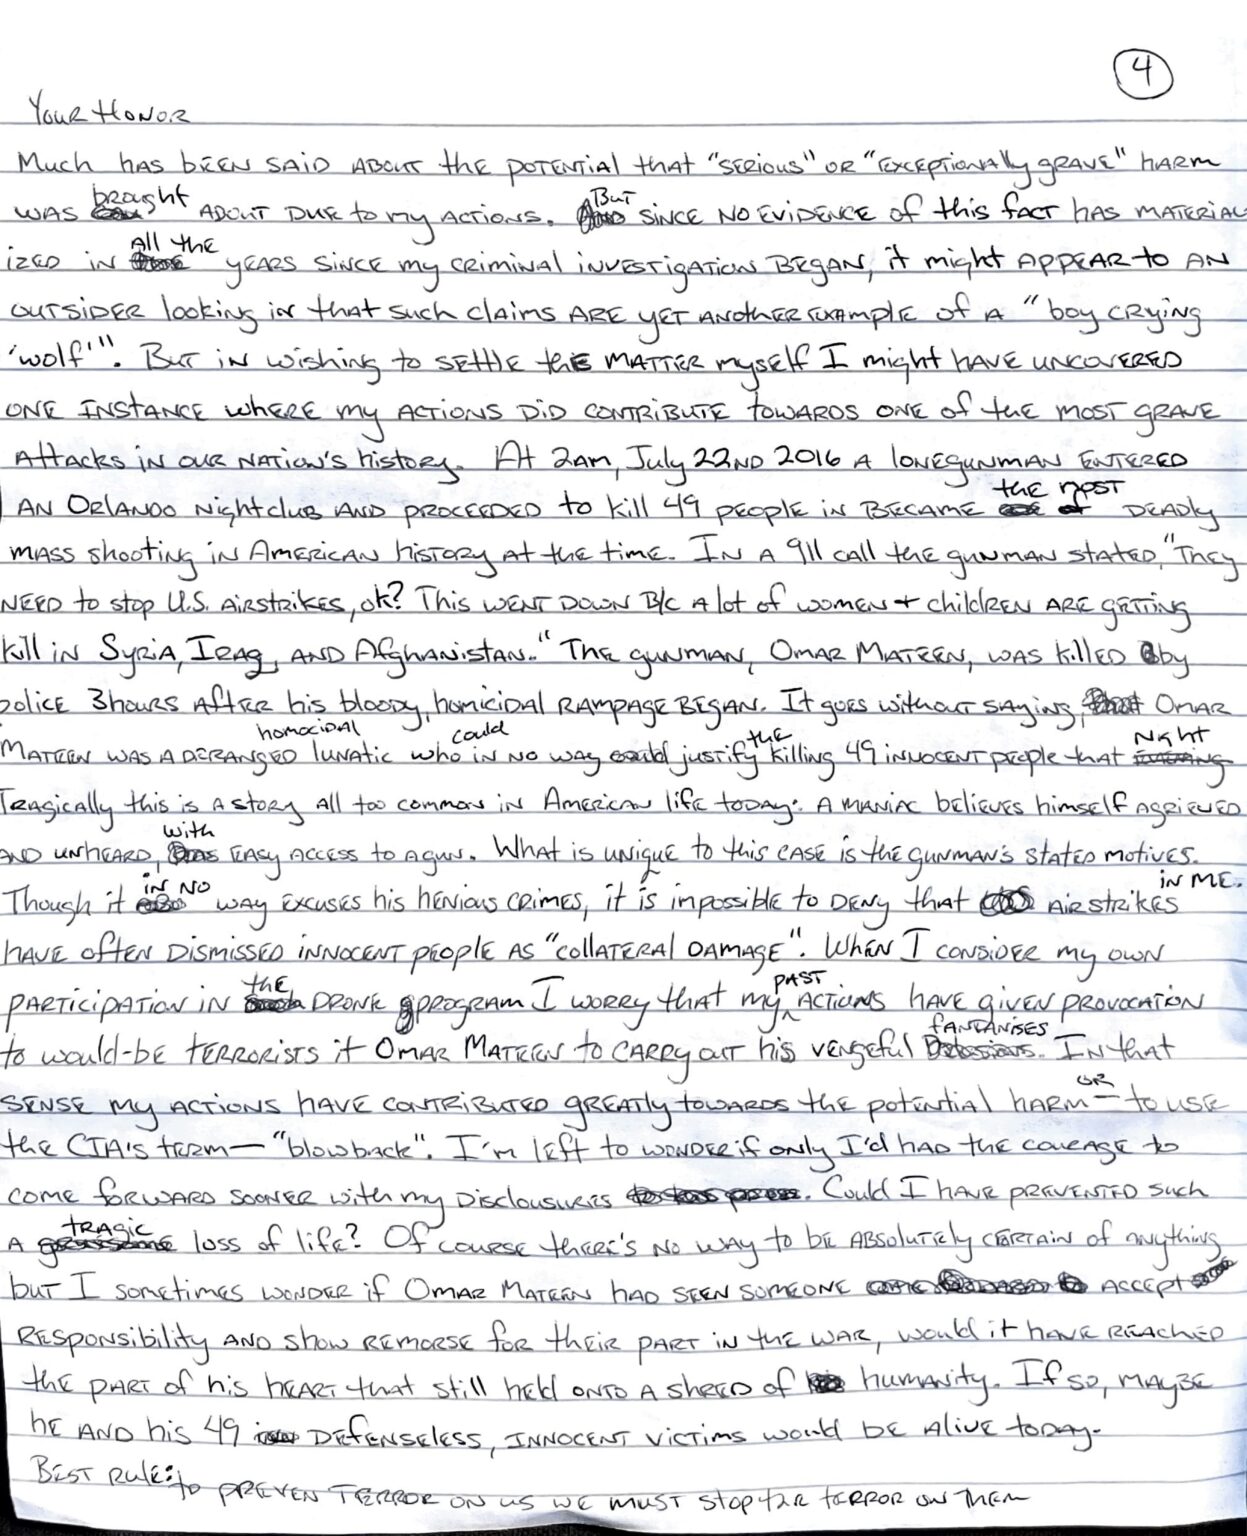 4
Your Honor
Much has been said about the potential that "serious" or "exceptionally grave" harm
was brought about due to my actions. But since no evidence of this fact has material-
ized in all the years since my criminal investigation began, it might appear to an
outsider looking in that such claims are yet another example of a "boy crying
'wolf'". But in wishing to settle the matter myself I might have uncovered
one instance where my actions did contribute towards one of the most grave
attacks in our nation's history. At 2am, July 22nd 2016 a lonegunman entered
an Orlando nightclub and proceeded to kill 49 people in became the most deadly
mass shooting in American history at the time. In a 911 call the gunman stated, "They
need to stop U.S. airstrikes, ok? This went down b/c a lot of women + children are getting
kill in Syria, Iraq, and Afghanistan." The gunman, Omar Mateen, was killed by
police 3 hours after his bloody, homicidal rampage began. It goes without saying, Omar
Mateen was a deranged homocidal lunatic who could in no way justify the killing 49 innocent people that night
Tragically this is a story all too common in American life today: a maniac believes himself agrieved
and unheard, with easy access to a gun. What is unique to this case is the gunman's stated motives.
Though it in no way excuses his henious crimes, it is impossible to deny that airstrikes in ME.
have often dismissed innocent people as "collateral damage". When I consider my own
participation in the drone program I worry that my past actions have given provocation
to would-be terrorists it Omar Mateen to carry out his vengeful fantanises. In that
sense my actions have contributed greatly towards the potential harm or — to use
the CIA's term — "blowback". I'm left to wonder if only I'd had the courage to
come forward sooner with my disclousures. Could I have prevented such
a tragic loss of life? Of course there's no way to be absolutely certain of anything
but I sometimes wonder if Omar Mateen had seen someone accept
responsibility and show remorse for their part in the war, would it have reached
the part of his heart that still held onto a shred of humanity. If so, maybe
he and his 49 defenseless, innocent victims would be alive today.
Best rule: to preven terror on us we must stop terror on them